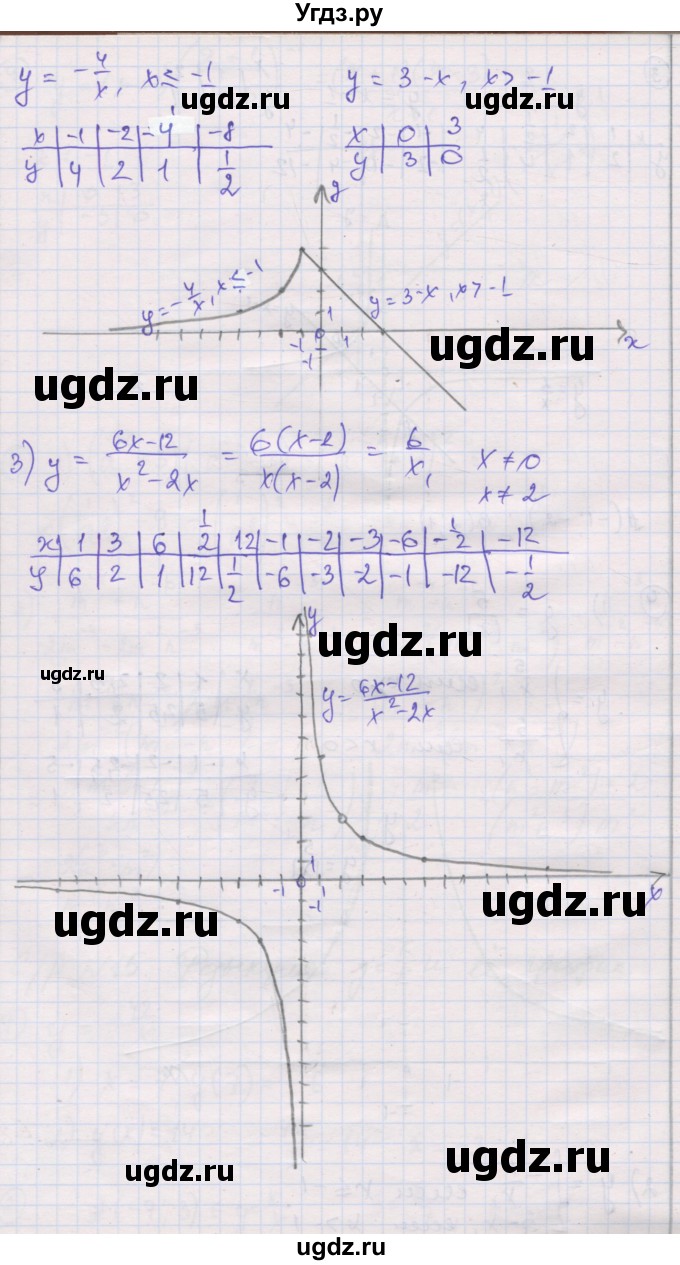 Угдз.ру
y = -4/x, x ≤ -1    y = 3-x, x > -1
ugdz.ru    ugdz.ru
x | -1 | -2 | -4 | -8    x | 0 | 3
y | 4 | 2 | 1 | 1/2    y | 3 | 0
y
y = -4/x, x ≤ -1
y = 3-x, x > -1
1
-1 0 1
x
-1
ugdz.ru
ugdz.ru
3) y = 6x-12/x²-2x = 6(x-2)/x(x-2) = 6/x, x ≠ 0
x ≠ 2
x | 1 | 3 | 6 | 1/2 | 12 | -1 | -2 | -3 | -6 | -1/2 | -12
y | 6 | 2 | 1 | 12 | 1/2 | -6 | -3 | -2 | -1 | -12 | -1/2
y
ugdz.ru
ugdz.ru
y = 6x-12/x²-2x
1
-1 0 1
x
-1
ugdz.ru
ugdz.ru
ugdz.ru
ugdz.ru
ugdz.ru